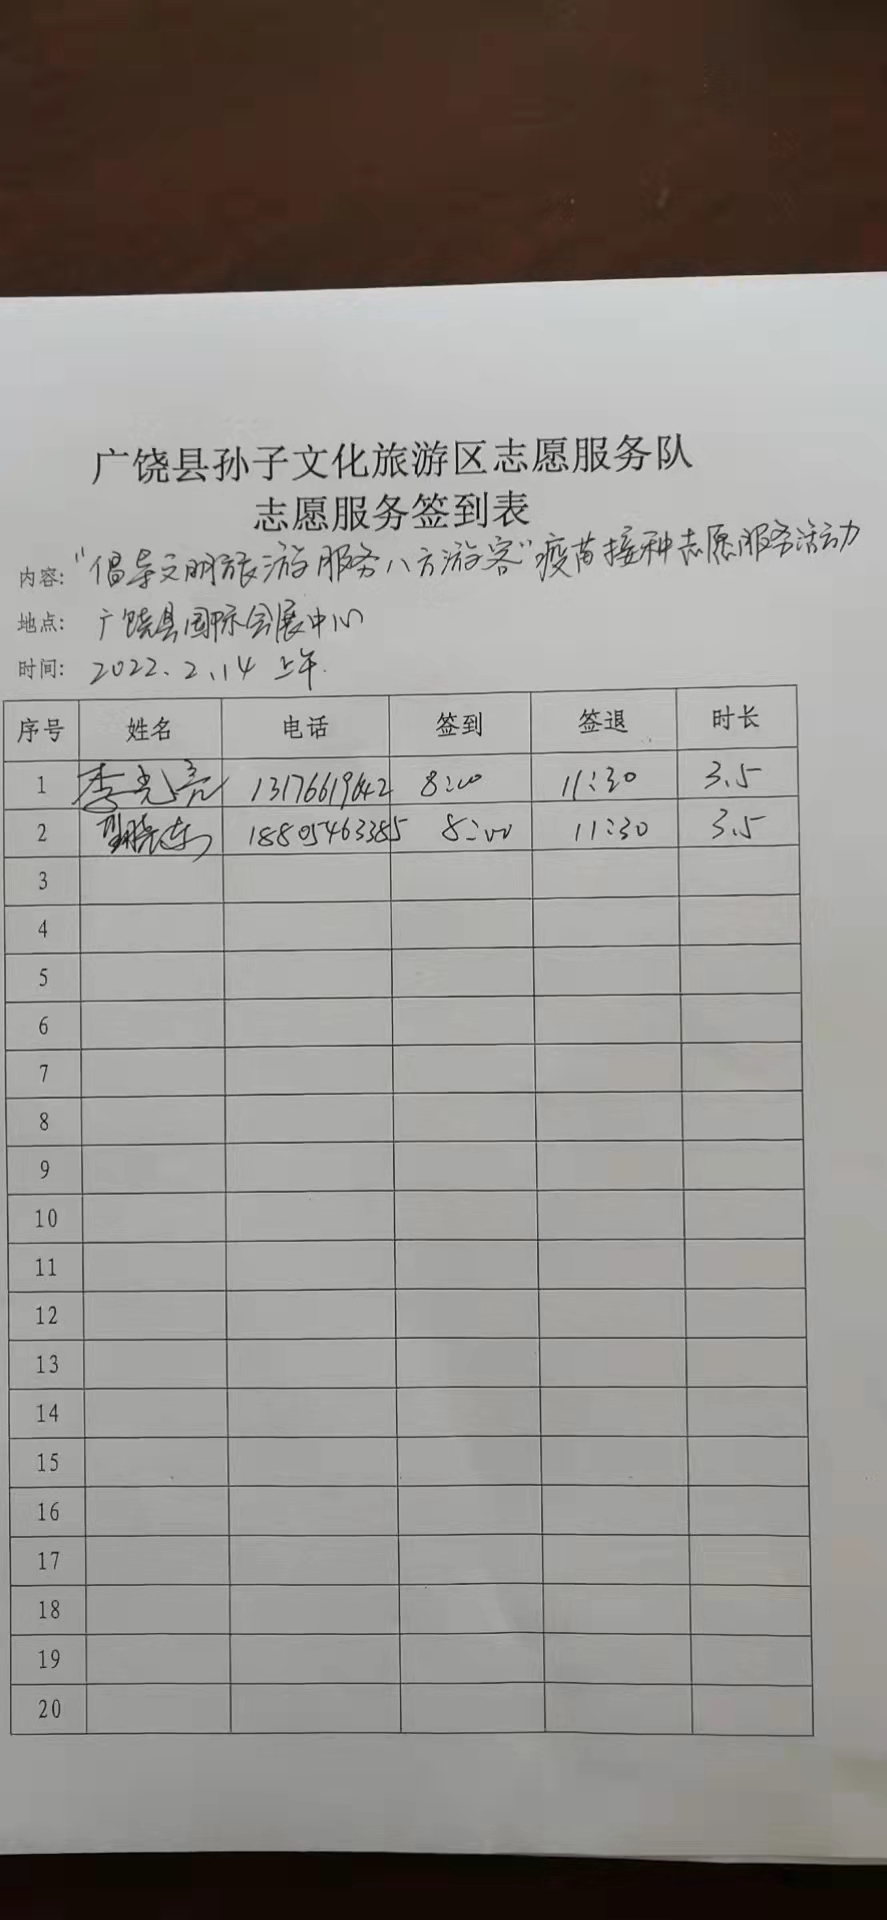 广饶县孙子文化旅游区志愿服务队
志愿服务签到表
内容: "倡导文明旅游 服务八方游客"疫苗接种志愿服务活动
地点: 广饶县国际会展中心
时间: 2022.2.14 上午.
序号 姓名 电话 签到 签退 时长
1 李光亮 13176619642 8:00 11:30 3.5
2 18805463385 8:00 11:30 3.5
3
4
5
6
7
8
9
10
11
12
13
14
15
16
17
18
19
20